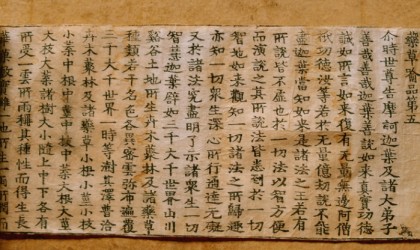 藥草喻品第五
尒時世尊告摩訶迦葉及諸大弟子
善哉善哉迦葉善說如來真實功德
誠如所言如來復有无量无邊阿僧
祇功德汝等若於无量億劫說不能
盡迦葉當知如來是諸法之王若有
所說皆不虛也於一切法以智方便
而演說之其所說法皆悉到於一切
智地如來觀知一切諸法之所歸趣
亦知一切衆生深心所行通達无礙
又於諸法究盡明了示諸衆生一切
智慧迦葉譬如三千大千世界山川
谿谷土地所生卉木叢林及諸藥草
種類若干名色各異密雲弥布遍覆
三千大千世界一時等澍其澤普洽
卉木叢林及諸藥草小根小莖小枝
小葉中根中莖中枝中葉大根大莖
大枝大葉諸樹大小隨上中下各有
所受一雲所雨稱其種性而得生長
地所生一雨所潤而